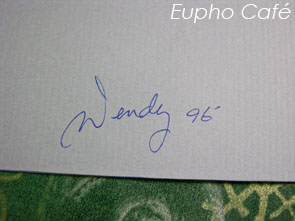 Eupho Café
Wendy 95